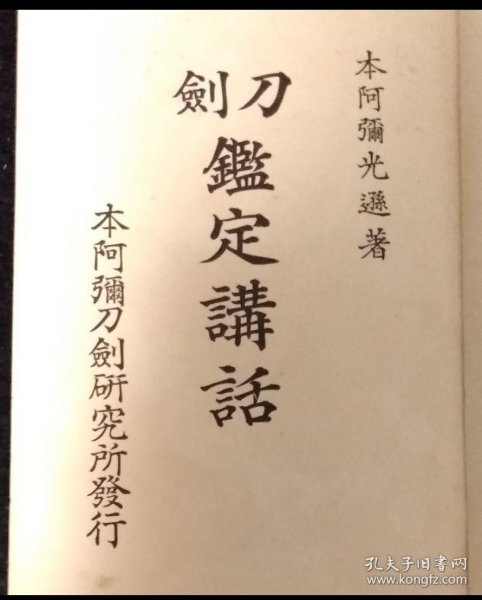 本阿彌光遜著
刀劍
鑑定講話
本阿彌刀劍研究所發行
孔夫子旧书网
www.kongfz.com